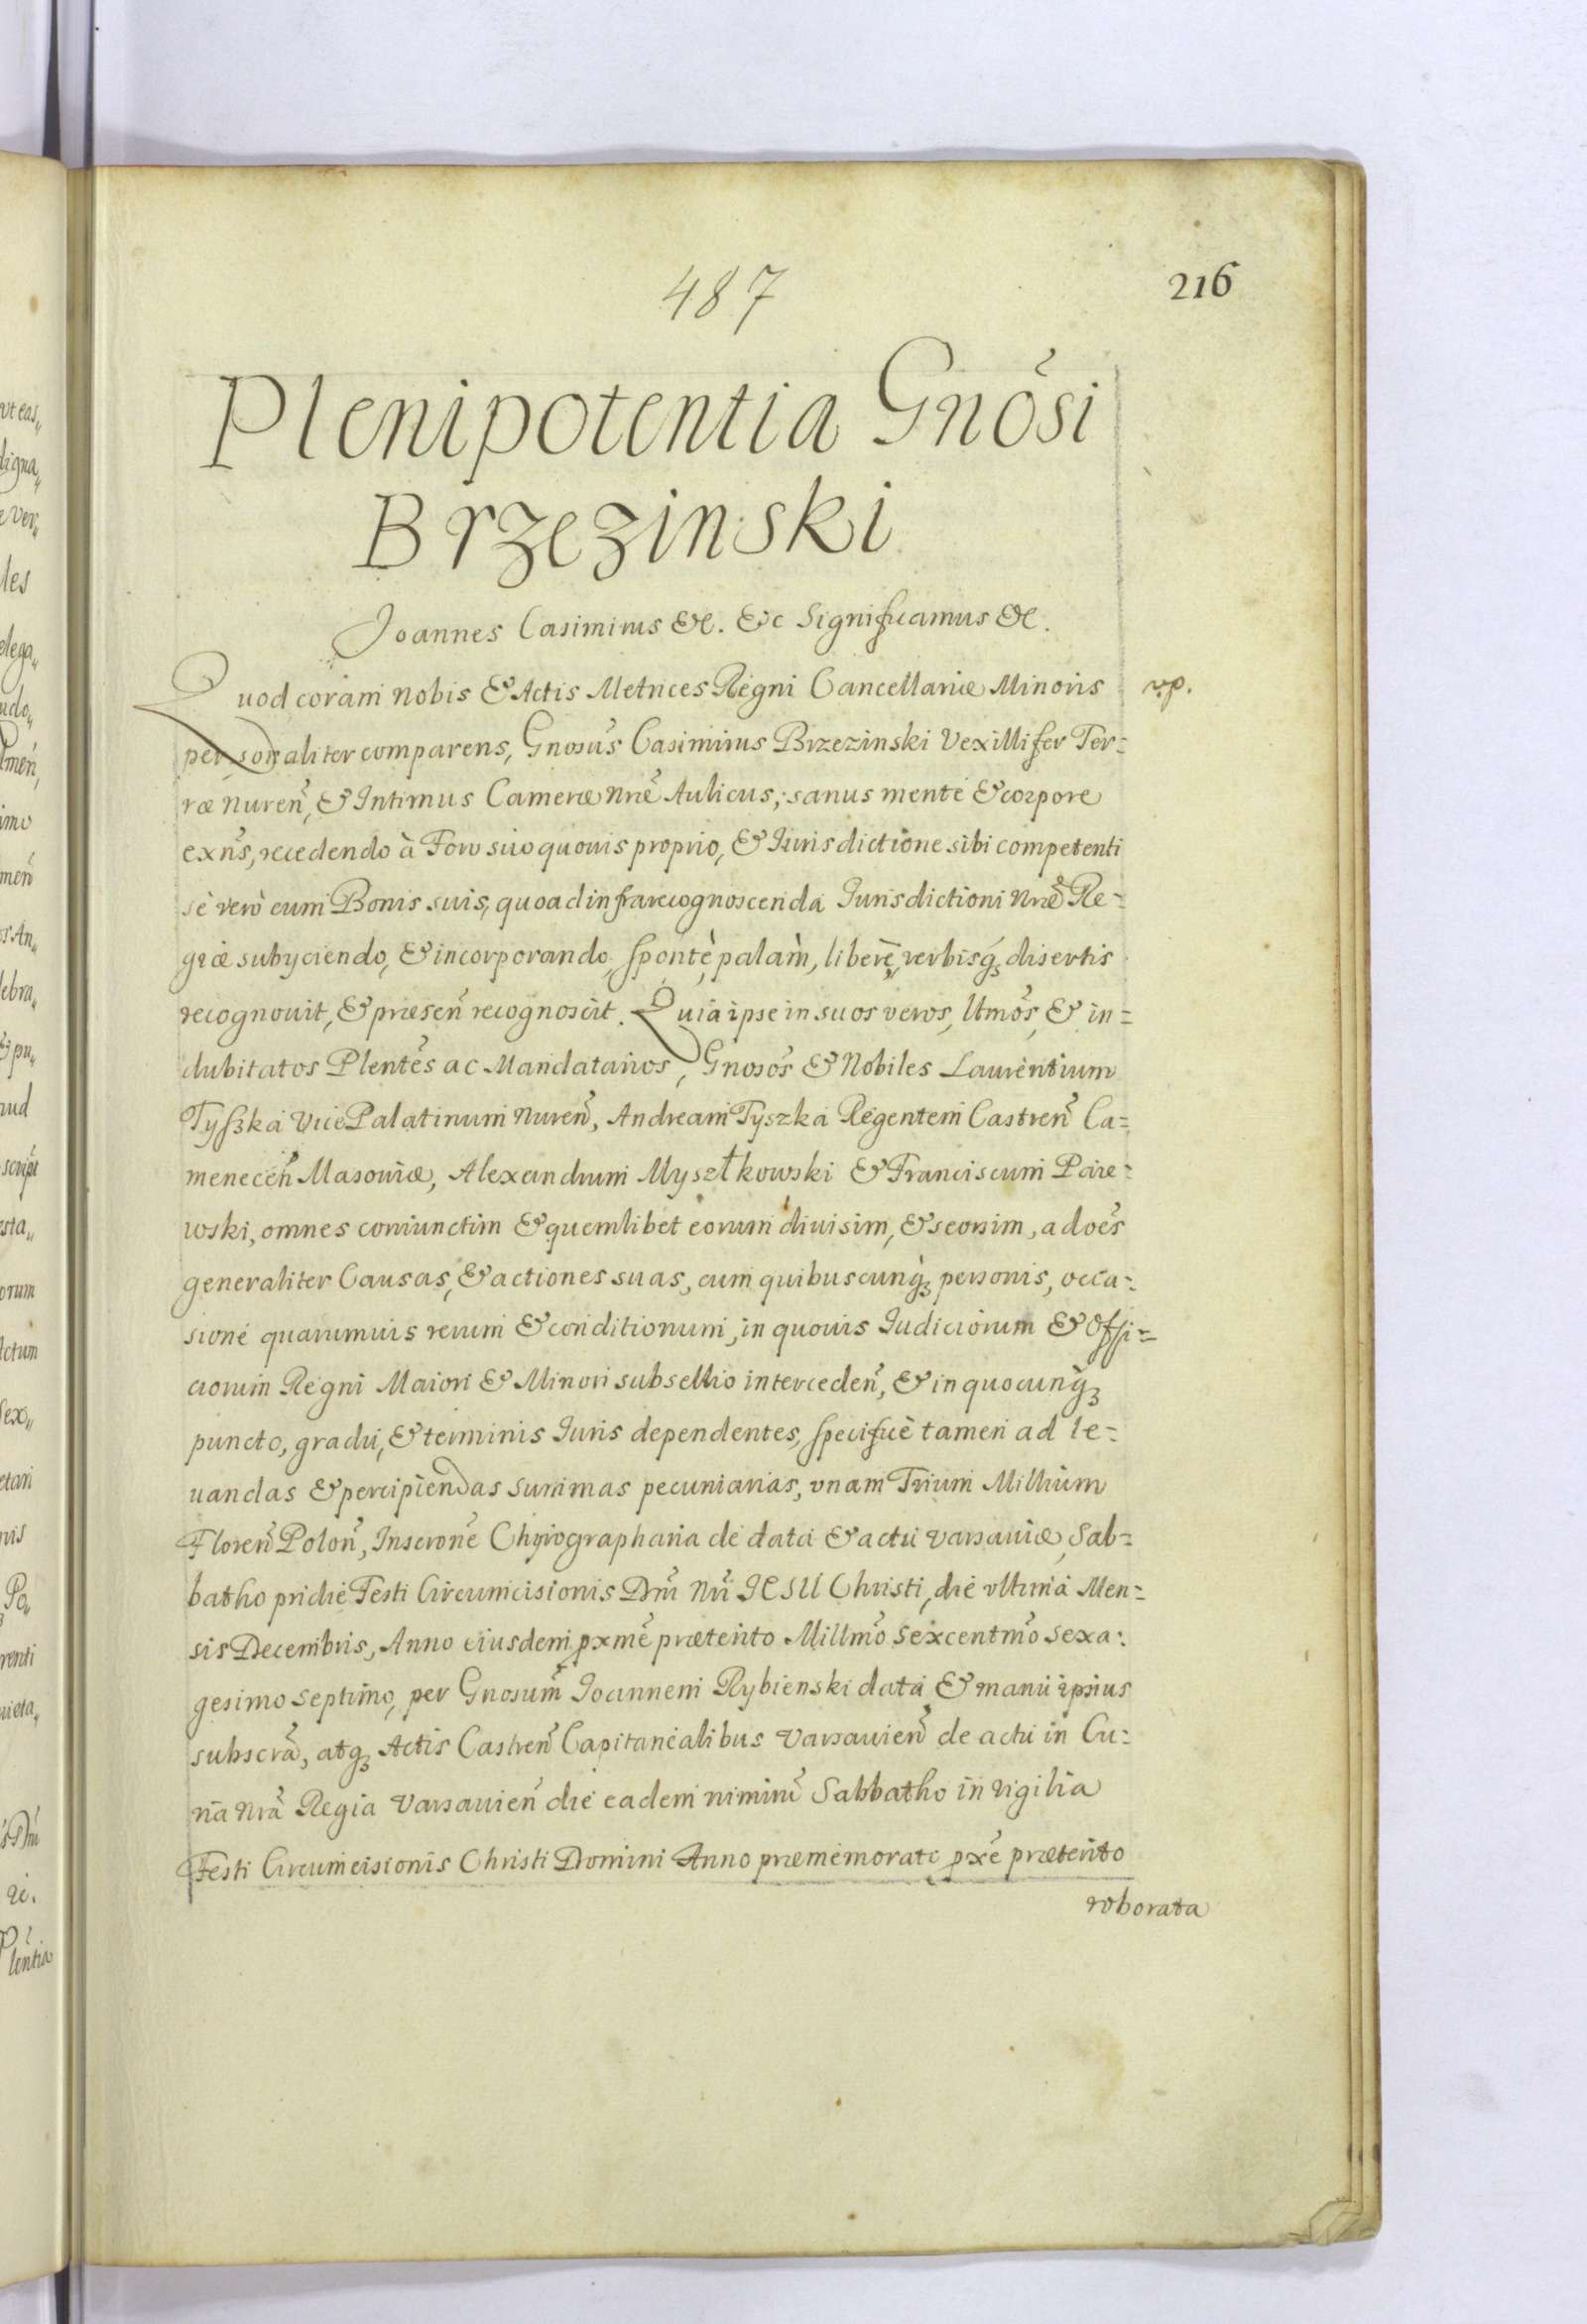 487
216
Plenipotentia Gnõsi
Brzezinski
Joannes Casimirus &c. &c Significamus &c.
Quod coram nobis & Actis Metrices Regni Cancellariæ Minoris
v.p.
personaliter comparens, Gnosus Casimirus Brzezinski Vexillifer Ter=
ræ nureñ, & Intimus Cameræ Nrẽ Aulicus, sanus mente & corpore
exñs, recedendo à Foro suo quouis proprio, & Jurisdictione sibi competenti
sè verò cum Bonis suis, quoad infrarecognoscenda Jurisdictioni Nrẽ Re=
giæ subyciendo, & incorporando, spontè, palàm, liberè, verbisq; disertis
recognouit, & præseñ recognoscit. Quia ipse in suos veros, ltmõs, & in=
dubitatos Plentẽs ac Mandatarios, Gnosõs & Nobiles Laurentium
Tyszka Vice Palatinum nureñ, Andream Tyszka Regentem Castreñ Ca=
meneceñ Masouiæ, Alexandrum Myszłkowski & Franciscum Pare=
wski, omnes coniunctim & quemlibet eorum diuisim, & seorsim, ad oẽs
generaliter Causas, & actiones suas, cum quibuscunq; personis, occa=
sione quarumuis rerum & conditionum, in quouis Judiciorum & Offi=
ciorum Regni Maiori & Minori subsellio intercedeñ, & in quocunq;
puncto, gradu, & terminis Juris dependentes, specificè tamen ad le=
uandas & percipiendas summas pecuniarias, vnam Trium Millium
Floreñ Poloñ, Inscrone Chyrographaria de data & actu Varsauiæ, Sab=
batho pridie Festi Circumcisionis Dñi Nri JESU Christi, die vltima Men=
sis Decembris, Anno eiusdem pxmẽ præterito Millmõ Sexcentmõ Sexa=
gesimo septimo, per Gnosum Joannem Rybienski data & manu ipsius
subscrã, atq; Actis Castreñ Capitanealibus Varsauieñ de actu in Cu=
ria Nrã Regia Varsauieñ die eadem nimirũ Sabbatho in vigilia
Festi Circumcisionis Christi Domini Anno præmemorato pxẽ præterito
roborata